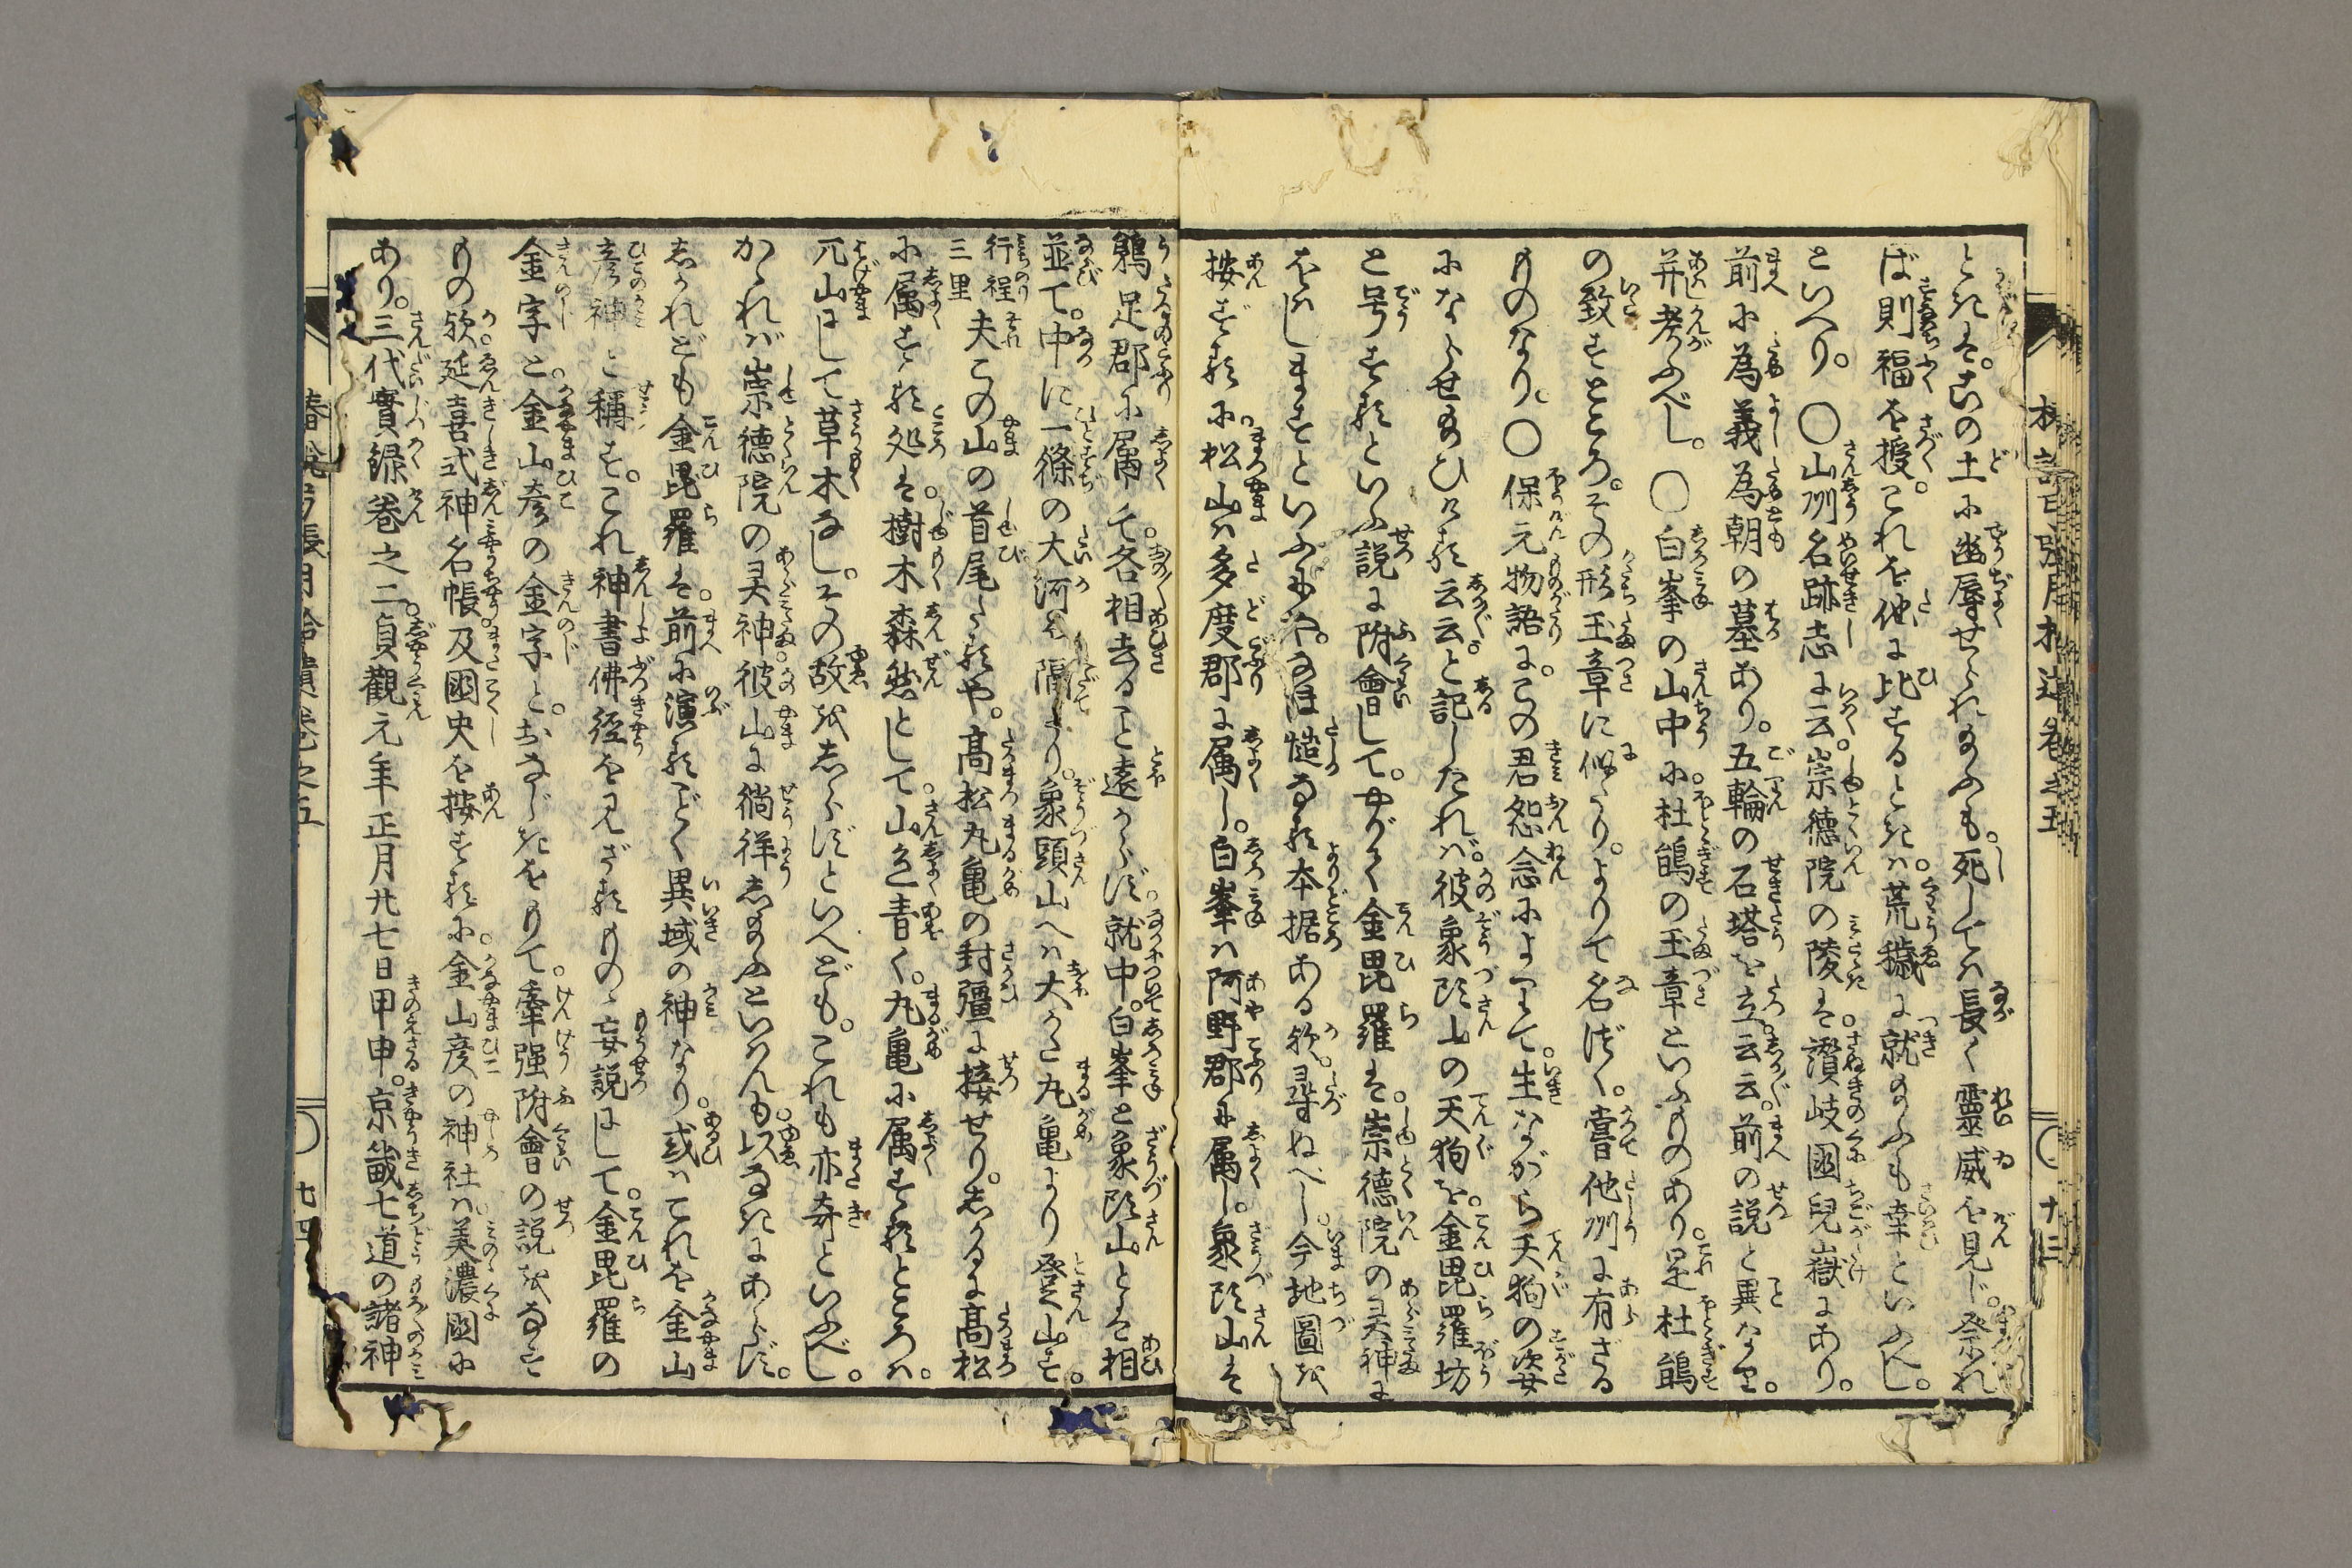 ときは。この土に幽辱せられ給ふも。死しては長く靈威を見じ。祭れ
ば則福を授く。これを他に比するときは。荒穢に就給ふも幸といふべし。
といへり。○山州名跡志に云。崇德院の陵は。讃岐國兒嶽にあり。
前に為義為朝の墓あり。五輪の石塔を立云云。前の說と異なり。
并考ふべし。○白峯の山中に。杜鵑の玉章といふものあり。是杜鵑
の致すところ。その形玉章に似たり。よりて名づく。嘗他州に有ざる
ものなり。○保元物語に。この君怨念によりて。生ながら天狗の姿
にならせ給ひける云云。と記したれば。彼象頭山の天狗を。金毘羅坊
と号するといふ説に附會して。やがて金毘羅は。崇德院の灵神に
をはしますといふ歟。なほ慥なる本據ある歟。尋ぬべし。今地圖を
按ずるに。松山は多度郡に属し。白峯は阿野郡に属し。象頭山は
鵜足郡に属して。各相去ること遠からず。就中。白峯と象頭山とは相
並て。中に一條の大河を隔たり。象頭山へは大かた丸亀より登山す。
行程三里
夫この山の首尾たるや。高松丸亀の封彊に接せり。しかるに高松
に属する処は。樹木森然として。山色青く。丸亀に属するところは。
兀山にして草木なし。その故をしらずといへども。これも亦奇といふべし。
かゝれば崇德院の灵神彼山に徜徉し給ふといはんも。以なきにあらず。
しかれども金毘羅は。前に演るごとく異域の神なり。或はこれを金山
彦神と稱す。これ神書佛經を見ざるものゝ妄説にして。金毘羅の
金字と。金山彦の金字と。おなじきをもて。牽强附會の説をなす
もの歟。延喜式神名帳及國史を按ずるに。金山彦の神社は。美濃國に
あり。三代實録巻之二。貞觀元年正月廿七日甲申。京畿七道の諸神